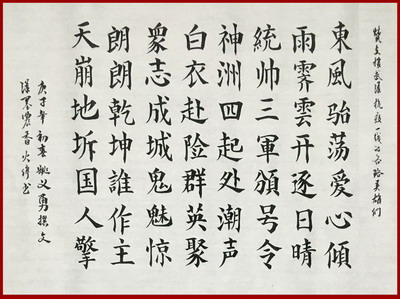 赞支援武漢抗疫一线的各路英雄们
東風骀荡爱心傾
雨霽雲开逐日晴
統帅三軍頒号令
神洲四起处潮声
白衣赴险群英聚
衆志成城鬼魅惊
朗朗乾坤誰作主
天崩地坼国人擎
庚子年初春姚义勇撰文
墨濃香书